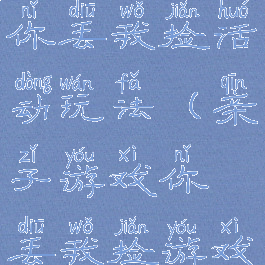 nǐ diū wǒ jiǎn huó
你丢我捡活
dòng wán fǎ qīn
动玩法（亲
zǐ yóu xì nǐ
子游戏你
diū wǒ jiǎn yóu xì
丢我捡游戏